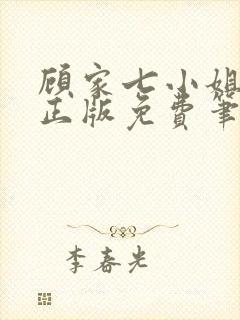 顾家七小姐
正版免费笔
李春光